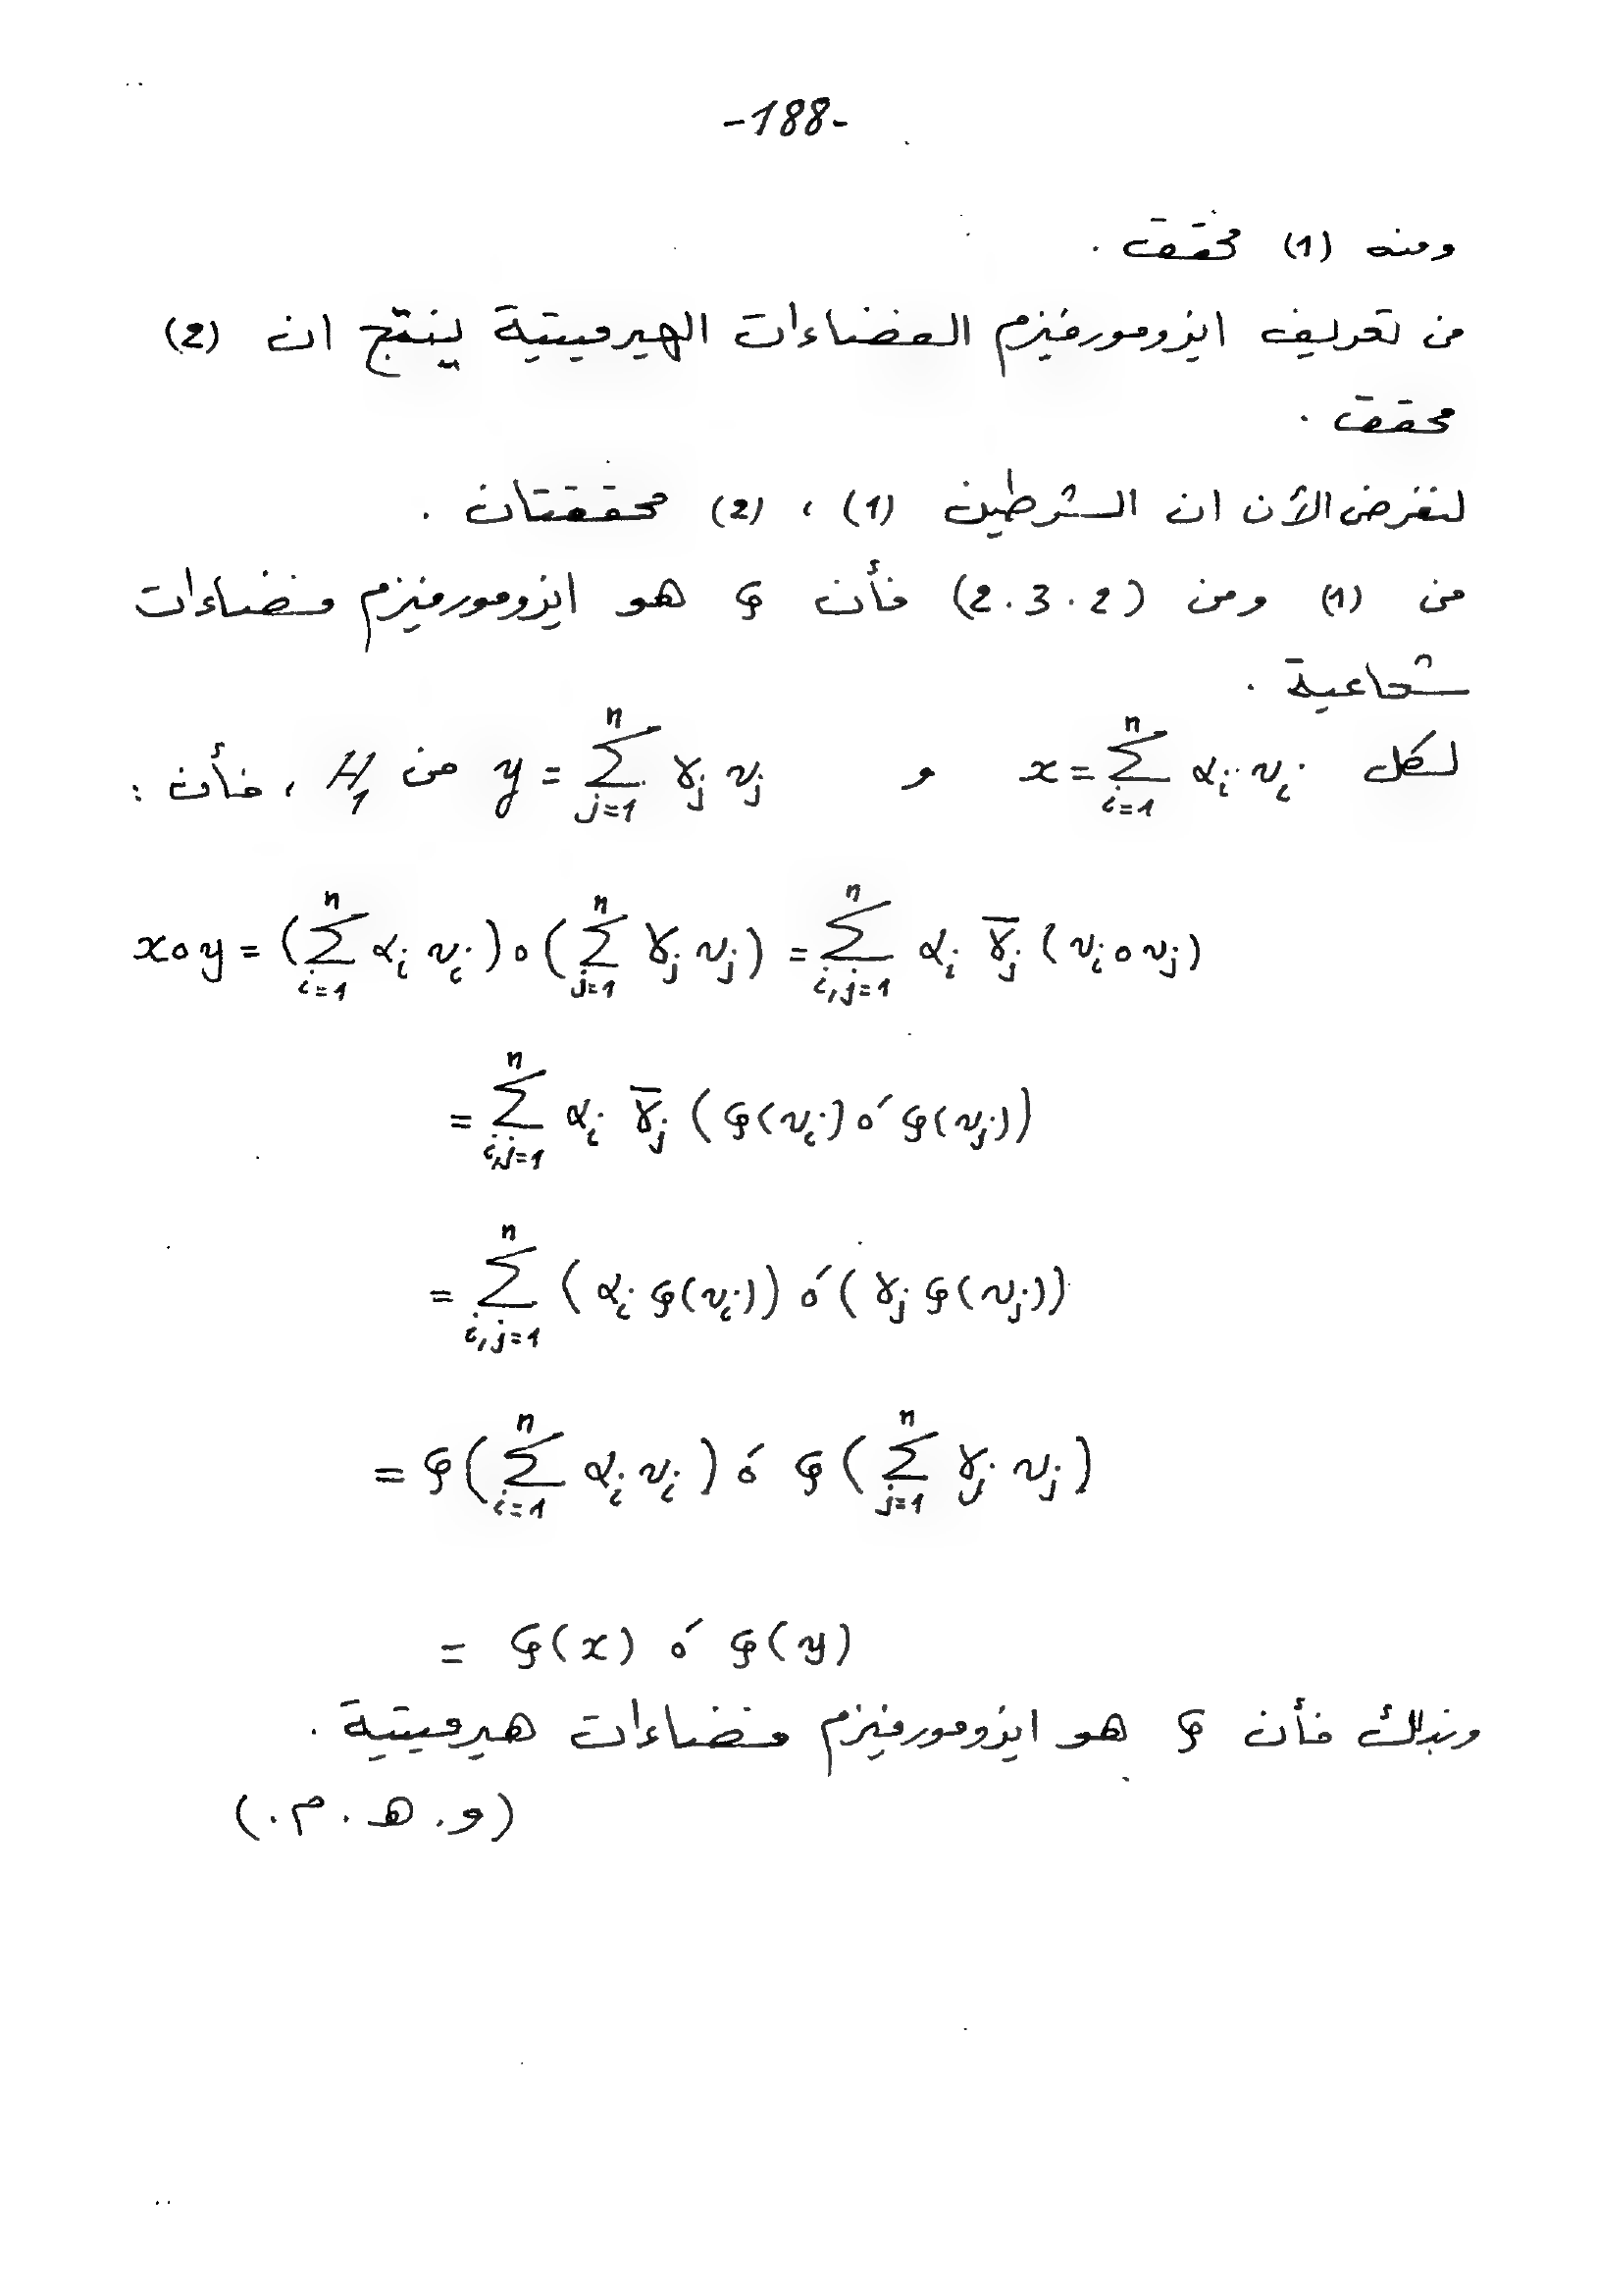 -188-
ومنه (1) محقق .
من تعريف ايزومورفيزم الفضاءات الهيرميتية ينتج ان (2)
محقق .
لنفرض الآن ان الشرطين (1) ، (2) محققتان .
من (1) ومن (2.3.2) فأن φ هو ايزومورفيزم فضاءات
شعاعية .
لكل x = ∑_{i=1}^{n} α_i v_i و y = ∑_{j=1}^{n} γ_j v_j من H_1 ، فأن :
x∘y = (∑_{i=1}^{n} α_i v_i)∘(∑_{j=1}^{n} γ_j v_j) = ∑_{i,j=1}^{n} α_i γ̄_j (v_i∘v_j)
= ∑_{i,j=1}^{n} α_i γ̄_j (φ(v_i) ∘́ φ(v_j))
= ∑_{i,j=1}^{n} (α_i φ(v_i)) ∘́ (γ_j φ(v_j))
= φ(∑_{i=1}^{n} α_i v_i) ∘́ φ(∑_{j=1}^{n} γ_j v_j)
= φ(x) ∘́ φ(y)
وبذلك فأن φ هو ايزومورفيزم فضاءات هيرميتية .
(و . هـ . م .)